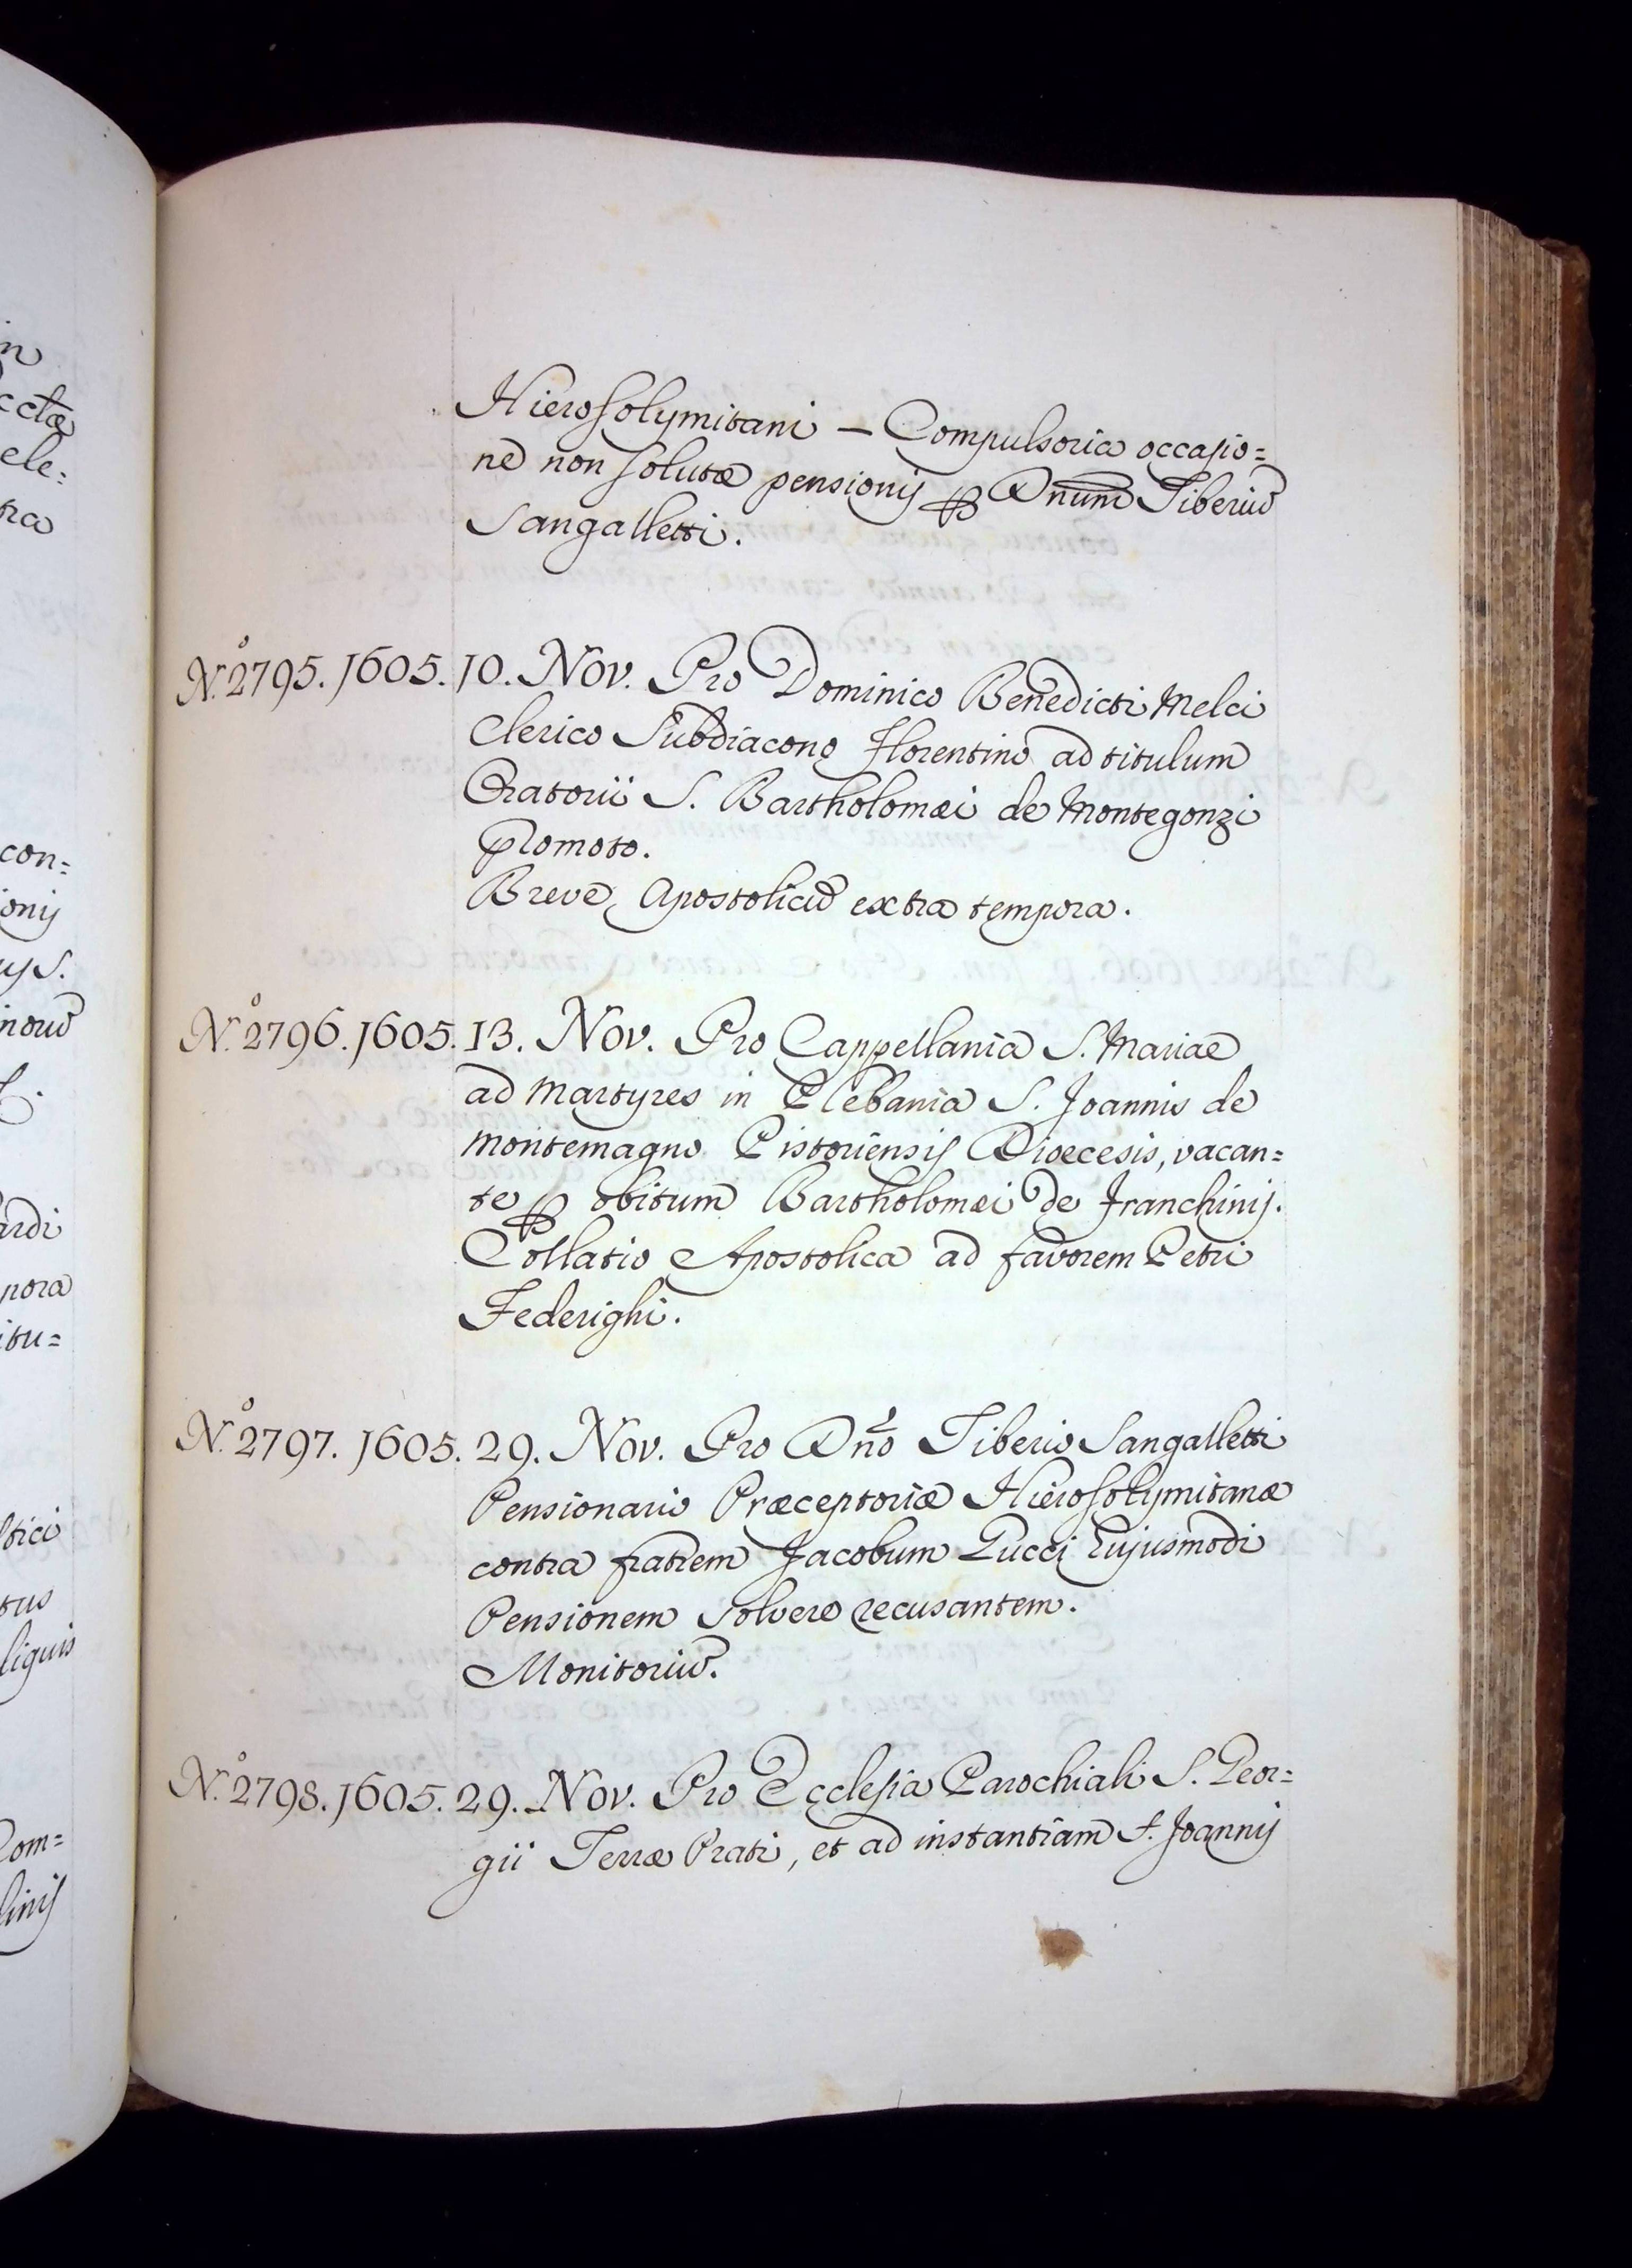 Hierosolymitani – Compulsoria occasio=
ne non solutæ pensionis ꝑ Dnum Tiberiũ
Sangalletti.
N.º 2795. 1605. 10. Nov. Pro Dominico Benedicti Melci
Clerico Subdiacono Florentino ad titulum
Oratorii S. Bartholomæi de Montegonzi
promoto.
Breve Apostolicũ extra tempora.
N.º 2796. 1605. 13. Nov. Pro Cappellania S. Mariæ
ad Martyres in Plebania S. Joannis de
Montemagno Pistoriensis Dioecesis, vacan=
te ꝑ obitum Bartholomæi de Franchinis.
Collatio Apostolica ad favorem Petri
Federighi.
N.º 2797. 1605. 29. Nov. Pro Dño Tiberio Sangalletti
Pensionario Præceptoriæ Hierosolymitanæ
contra fratrem Jacobum Pucci hujusmodi
Pensionem solvere recusantem.
Monitoriũ.
N.º 2798. 1605. 29. Nov. Pro Ecclesia Parochiali S. Geor=
gii Terræ Prati, et ad instantiam f. Joannis